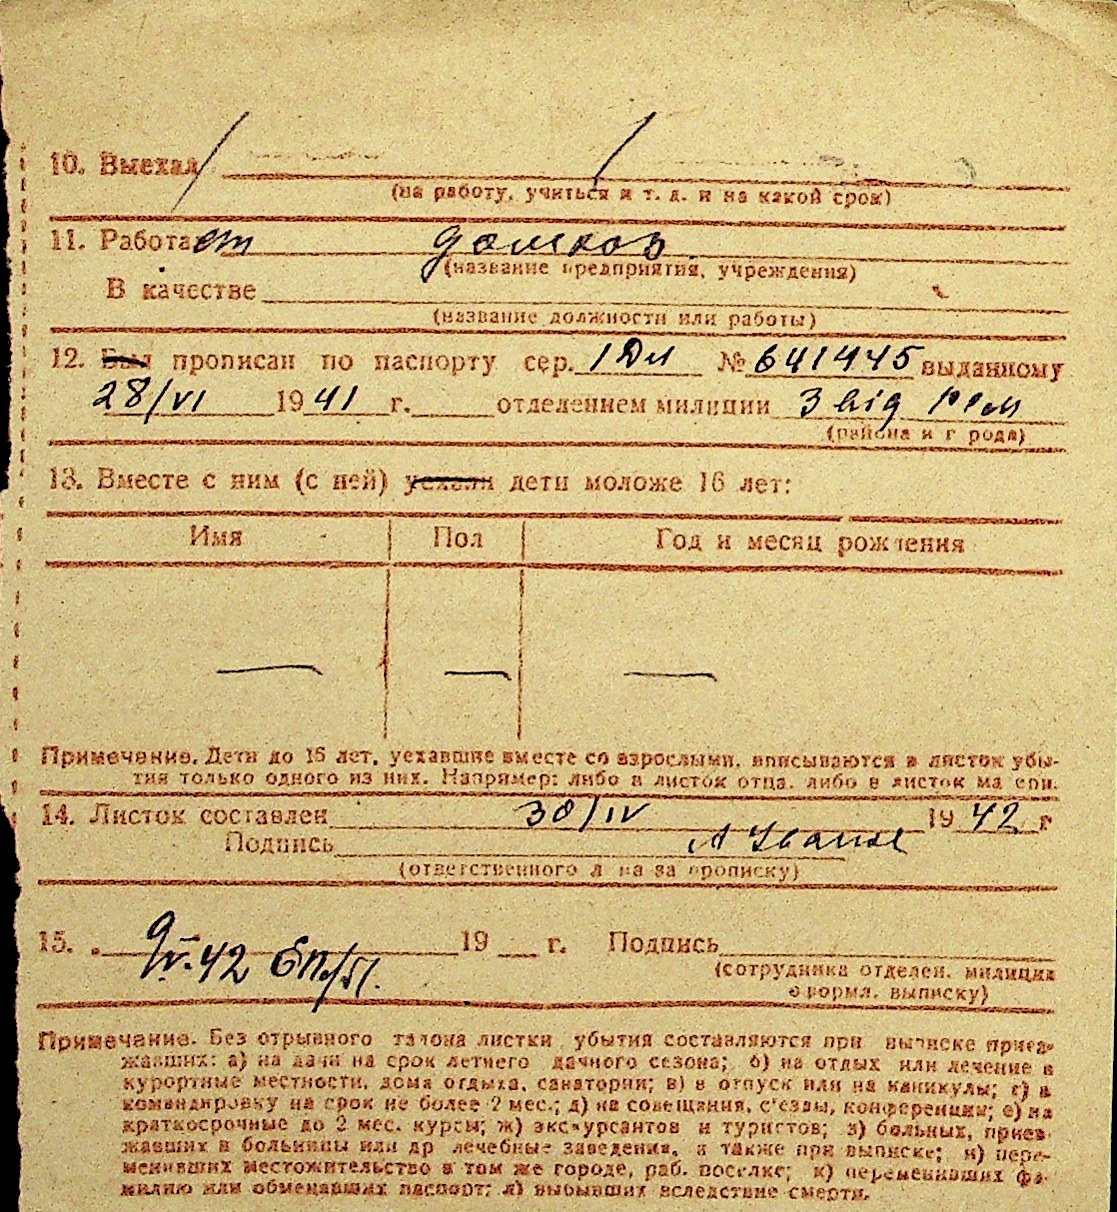 10. Выехал
(на работу, учиться и т. д. и на какой срок)
11. Работает домхоз.
(название предприятия, учреждения)
В качестве
(название должности или работы)
12. Был прописан по паспорту сер. № 641445 выданному
28/VI 1941 г. отделением милиции 3
(района и города)
13. Вместе с ним (с ней) уехали дети моложе 16 лет:
Имя Пол Год и месяц рождения
— — —
Примечание. Дети до 16 лет, уехавшие вместе со взрослыми, вписываются в листок убы-
тия только одного из них. Например: либо в листок отца, либо в листок матери.
14. Листок составлен 30/IV 1942 г
Подпись
(ответственного лица за прописку)
15. 42 19 г. Подпись
(сотрудника отделен. милиции
оформл. выписку)
Примечание. Без отрывного талона листки убытия составляются при выписке приез-
жавших: а) на дачи на срок летнего дачного сезона; б) на отдых или лечение в
курортные местности, дома отдыха, санатории; в) в отпуск или на каникулы; г) в
командировку на срок не более 2 мес.; д) на совещания, с'езды, конференции; е) на
краткосрочные до 2 мес. курсы; ж) экскурсантов и туристов; з) больных, приез-
жавших в больницы или др лечебные заведения, а также при выписке; и) пере-
менивших местожительство в том же городе, раб. поселке; к) переменивших фа-
милию или обменявших паспорт; л) выбывших вследствие смерти.